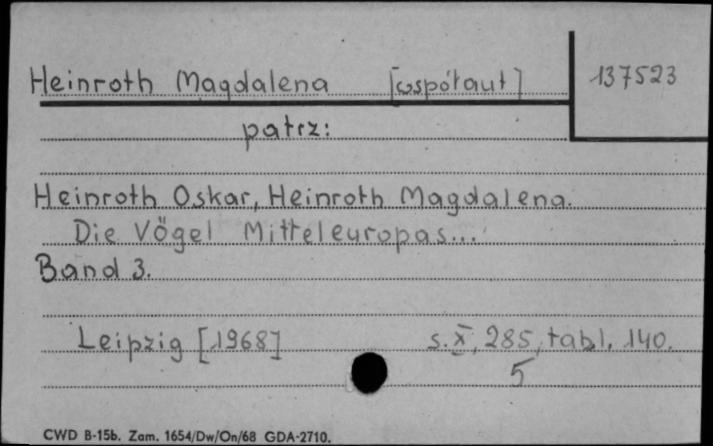 Heinroth Magdalena [współaut] 137523
patrz:
Heinroth Oskar, Heinroth Magdalena.
Die Vögel Mitteleuropas...
Band 3.
Leipzig [1968] s. X, 285, tabl. 140.
5
CWD B-15b. Zam. 1654/Dw/On/68 GDA-2710.